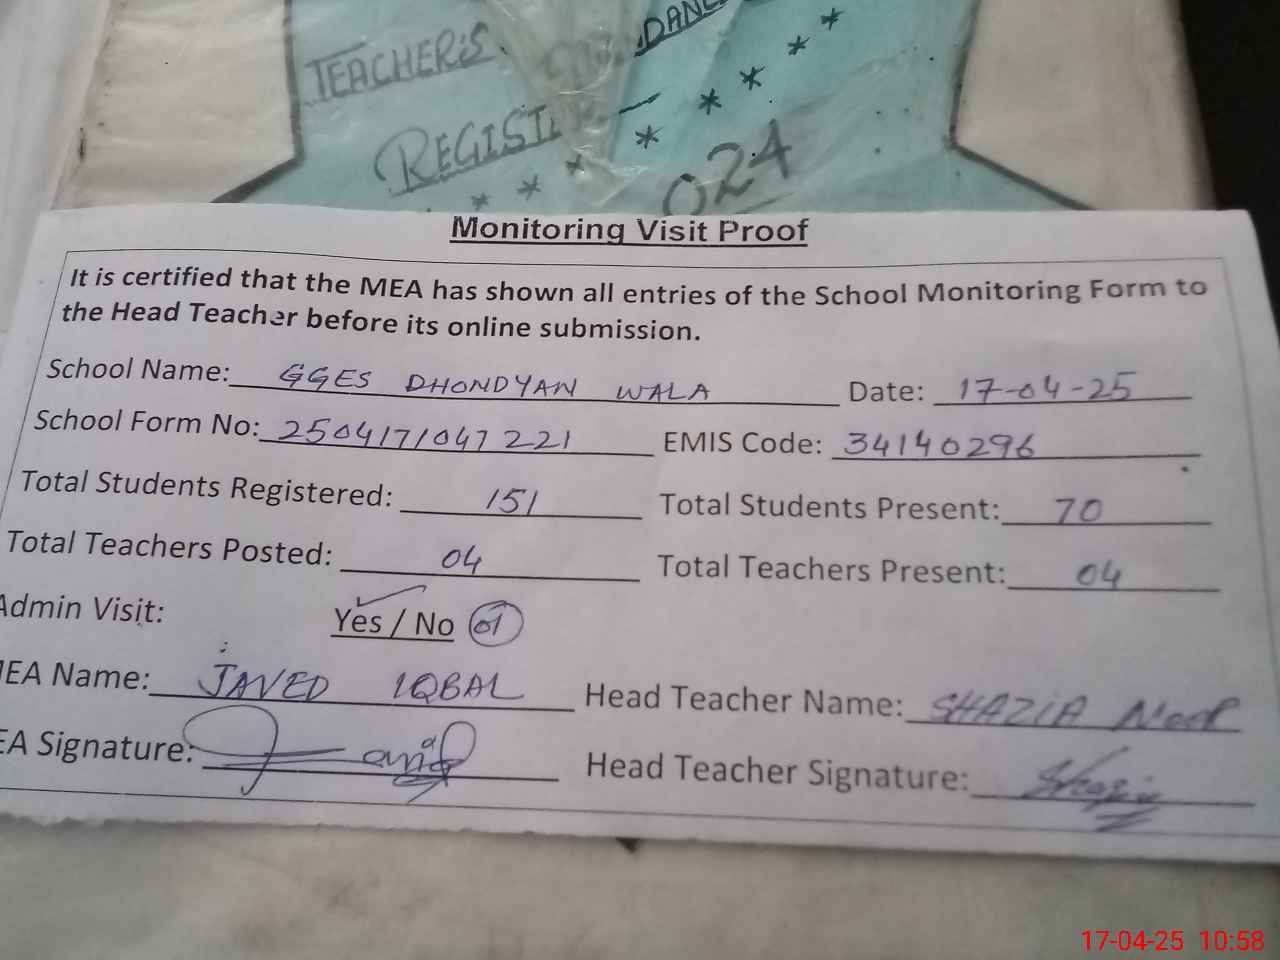 TEACHER'S
REGISTER
024
Monitoring Visit Proof
It is certified that the MEA has shown all entries of the School Monitoring Form to
the Head Teacher before its online submission.
School Name: GGES DHONDYAN WALA Date: 17-04-25
School Form No: 250417/047221 EMIS Code: 34140296
Total Students Registered: 151 Total Students Present: 70
Total Teachers Posted: 04 Total Teachers Present: 04
Admin Visit: Yes / No 01
MEA Name: JAVED IQBAL Head Teacher Name: SHAZIA Noor
EA Signature: Head Teacher Signature: Shazia
17-04-25 10:58